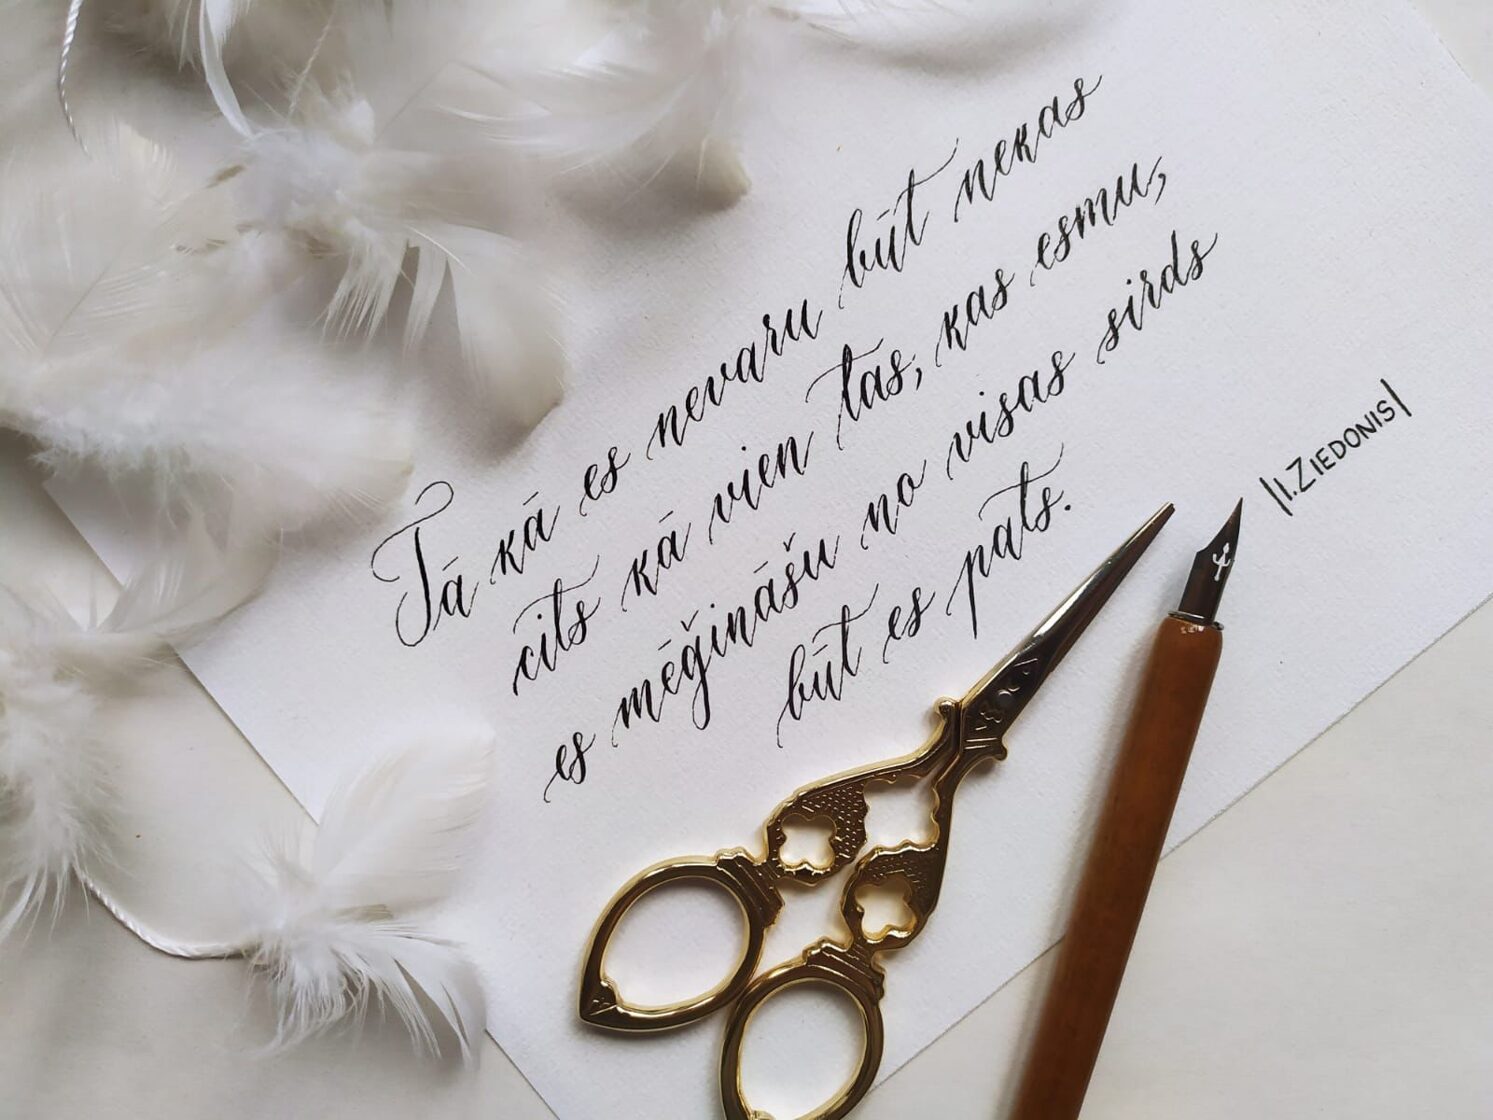 Tā kā es nevaru būt nekas
cits kā vien tas, kas esmu,
es mēģināšu no visas sirds
būt es pats.
|I.ZIEDONIS|